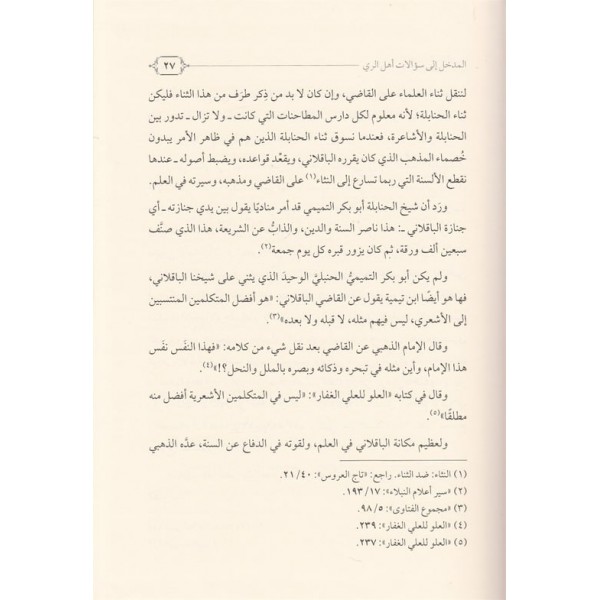 المدخل إلى سؤالات أهل الري
٢٧
لننقل ثناء العلماء على القاضي، وإن كان لا بد من ذِكر طرَف من هذا الثناء فليكن
ثناء الحنابلة؛ لأنه معلوم لكل دارس المطاحنات التي كانت ـ ولا تزال ـ تدور بين
الحنابلة والأشاعرة، فعندما نسوق ثناء الحنابلة الذين هم في ظاهر الأمر يبدون
خُصماء المذهب الذي كان يقرره الباقلاني، ويقعّد قواعده، ويضبط أصوله ـ عندها
نقطع الألسنة التي ربما تسارع إلى النثاء(١) على القاضي ومذهبه، وسيرته في العلم.
ورَد أن شيخ الحنابلة أبو بكر التميمي قد أمر مناديًا يقول بين يدي جنازته ـ أي
جنازة الباقلاني ـ: هذا ناصر السنة والدين، والذابُّ عن الشريعة، هذا الذي صنَّف
سبعين ألف ورقة، ثم كان يزور قبره كل يوم جمعة(٢).
ولم يكن أبو بكر التميميُّ الحنبليَّ الوحيدَ الذي يثني على شيخنا الباقلاني،
فها هو أيضًا ابن تيمية يقول عن القاضي الباقلاني: «هو أفضل المتكلمين المنتسبين
إلى الأشعري، ليس فيهم مثله، لا قبله ولا بعده»(٣).
وقال الإمام الذهبي عن القاضي بعد نقل شيء من كلامه: «فهذا النفَس نفَس
هذا الإمام، وأين مثله في تبحره وذكائه وبصره بالملل والنحل؟!»(٤).
وقال في كتابه «العلو للعلي الغفار»: «ليس في المتكلمين الأشعرية أفضل منه
مطلقًا»(٥).
ولعظيم مكانة الباقلاني في العلم، ولقوته في الدفاع عن السنة، عدَّه الذهبي
(١) النثاء: ضد الثناء. راجع: «تاج العروس»: ٤٠/ ٢١.
(٢) «سير أعلام النبلاء»: ١٧/ ١٩٣.
(٣) «مجموع الفتاوى»: ٥/ ٩٨.
(٤) «العلو للعلي الغفار»: ٢٣٩.
(٥) «العلو للعلي الغفار»: ٢٣٧.